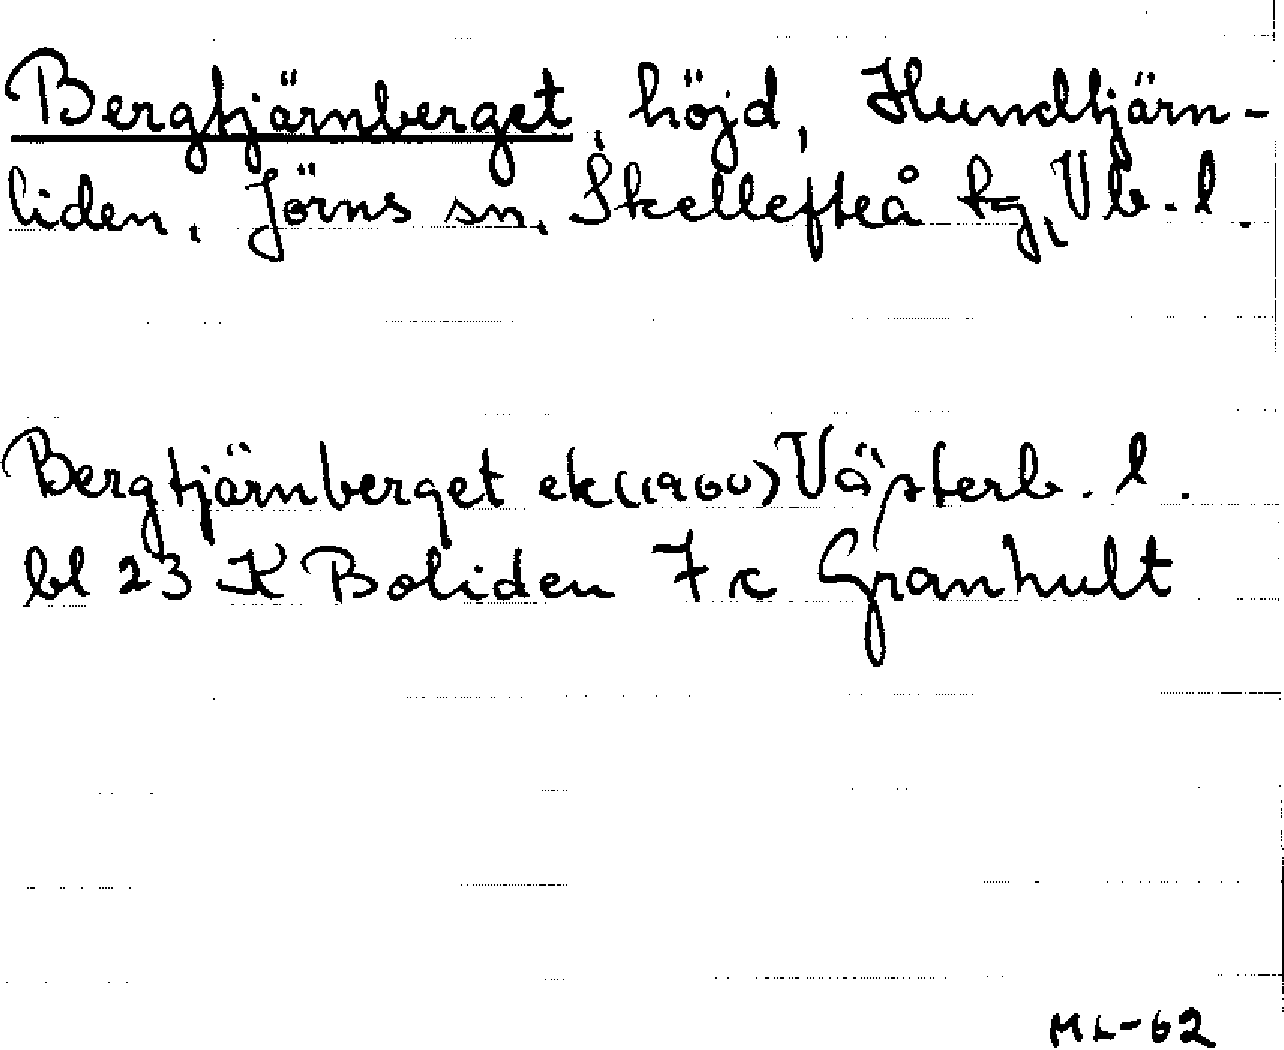 Bergtjärnberget, höjd, Hundtjärn-
liden, Jörns sn, Skellefteå kg, Vb. l.
Bergtjärnberget ek (1960) Västerb. l.
bl 23 K Boliden 7 c Granhult
ML-62